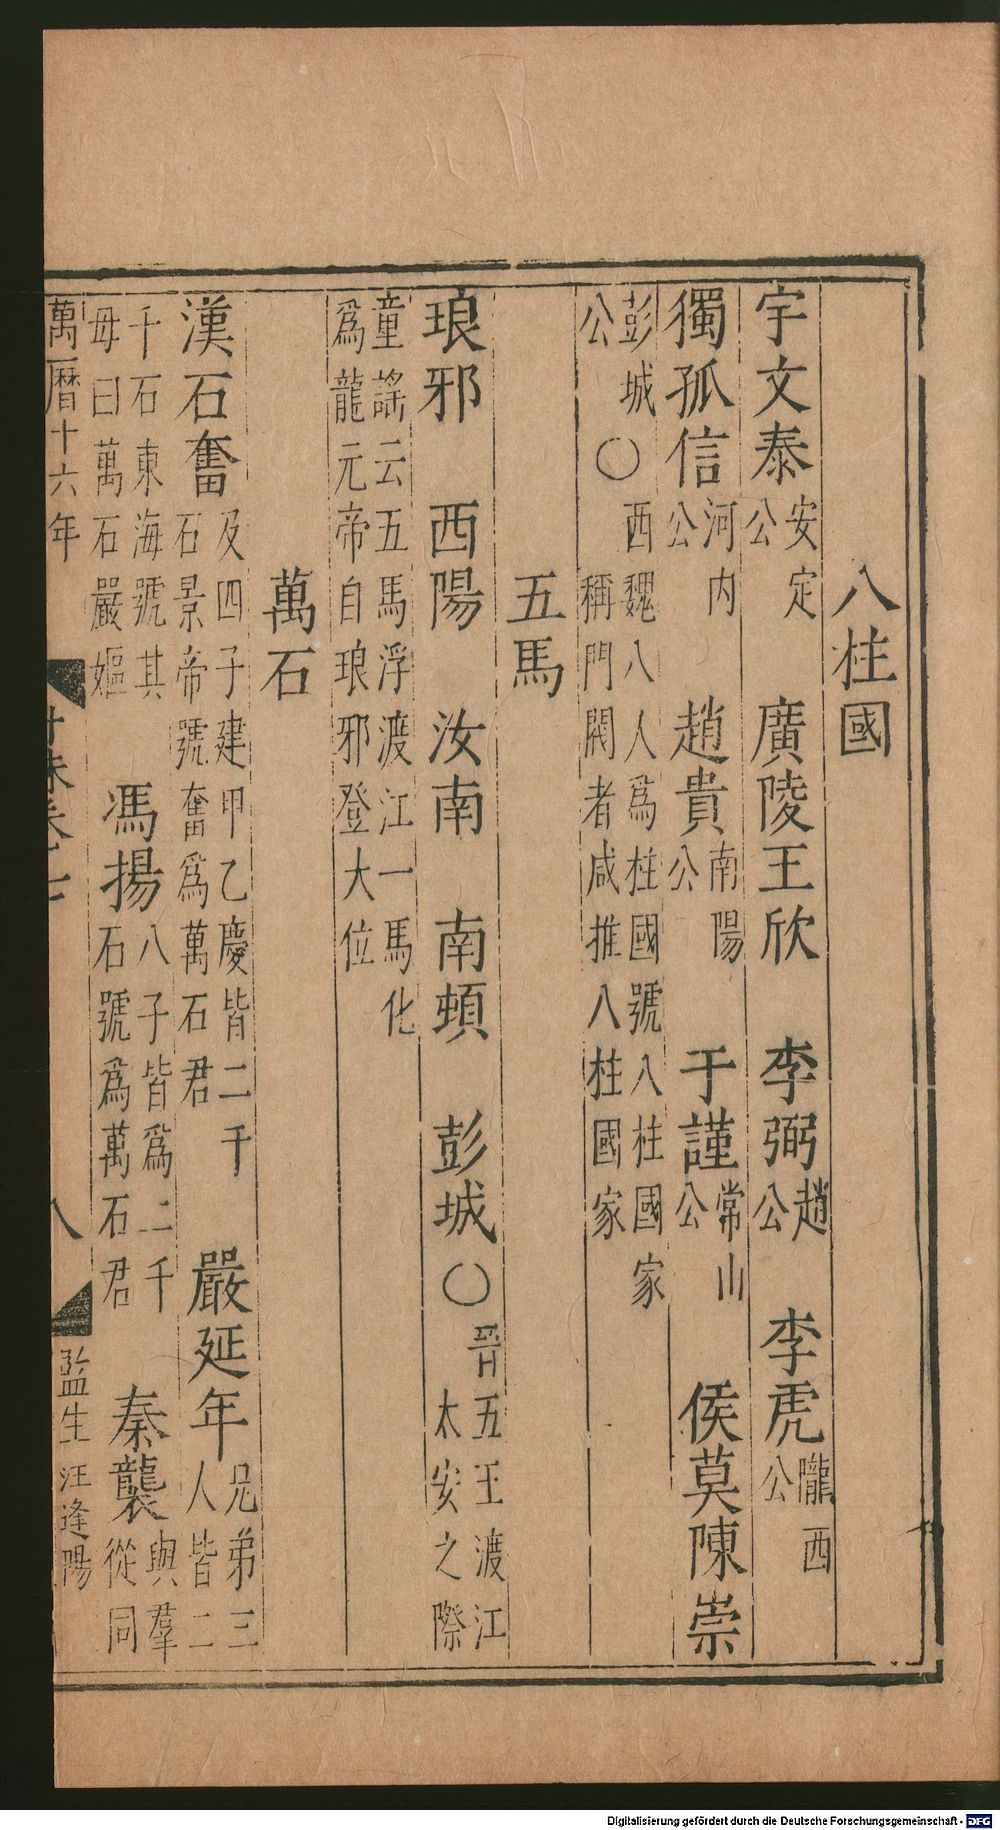 八柱國
宇文泰安定公　廣陵王欣　李弼趙公　李虎隴西公
獨孤信河內公　趙貴南陽公　于謹常山公　侯莫陳崇
彭城公○西魏八人爲柱國號八柱國家稱門閥者咸推八柱國家
五馬
琅邪　西陽　汝南　南頓　彭城○晉五王渡江太安之際
童謠云五馬浮渡江一馬化爲龍元帝自琅邪登大位
萬石
漢石奮及四子建甲乙慶皆二千石景帝號奮爲萬石君　嚴延年兄弟三人皆二
千石東海號其母曰萬石嚴嫗　馮揚八子皆爲二千石號爲萬石君　秦襲與羣從同
萬曆十六年
八
監生汪逢陽
Digitalisierung gefördert durch die Deutsche Forschungsgemeinschaft - DFG